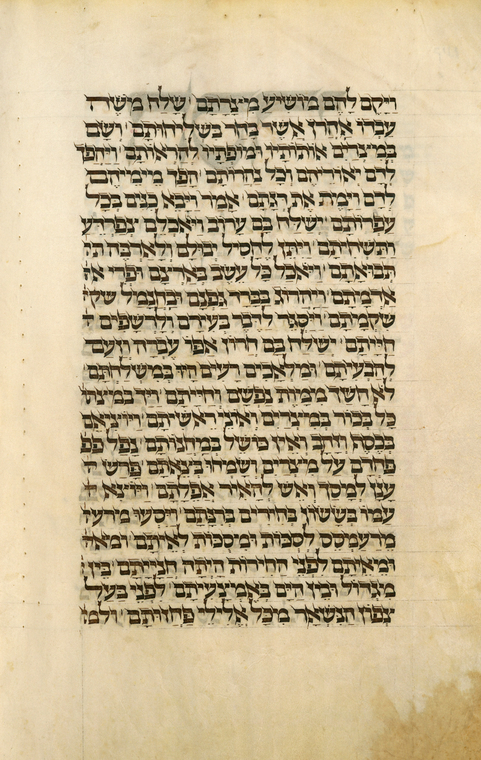 ויקם להם מושיע מצרתם שלח משה
עבדו אהרן אשר בחר בשליחותם ושם
במצרים אותותיו ומופתיו להראותם ויהפך
לדם יאוריהם וכל נהרותם הפך מימיהם
לדם וימת את דגתם אמר ויבא כנים בכל
עפרותם ישלח בם ערוב ויאכלם צפרדע
ותשחיתם ויתן לחסיל יבולם ולארבה
תבואתם ויאכל כל עשב בארצם ויפרי
אדמתם ויהרוג בברד גפנם ובחנמל
שקמתם ויסגר לדבר בעירם ולרשפים
חייתם ישלח בם חרון אפו עברה וזעם
להבעיתם ומלאכים רעים במשלחתם
לא חשך ממות נפשם וחייתם ויך במצרים
כל בכור במצרים ואוני ראשיתם ויוציאם
בכסף וזהב ואין כושל במחנותם נפל
פחדם על מצרים ושמחו בצאתם פרש
ענן למסך ואש להאיר אפלתם ויוצא
עמו בששון בחורים ברנתם ויסעו
מרעמסס לסכות ומסכות לאיתם
לפני החירות היתה חנייתם בין
מגדול ובין הים באמצעיתם לפני בעל
צפון הנשאר מכל אלילי